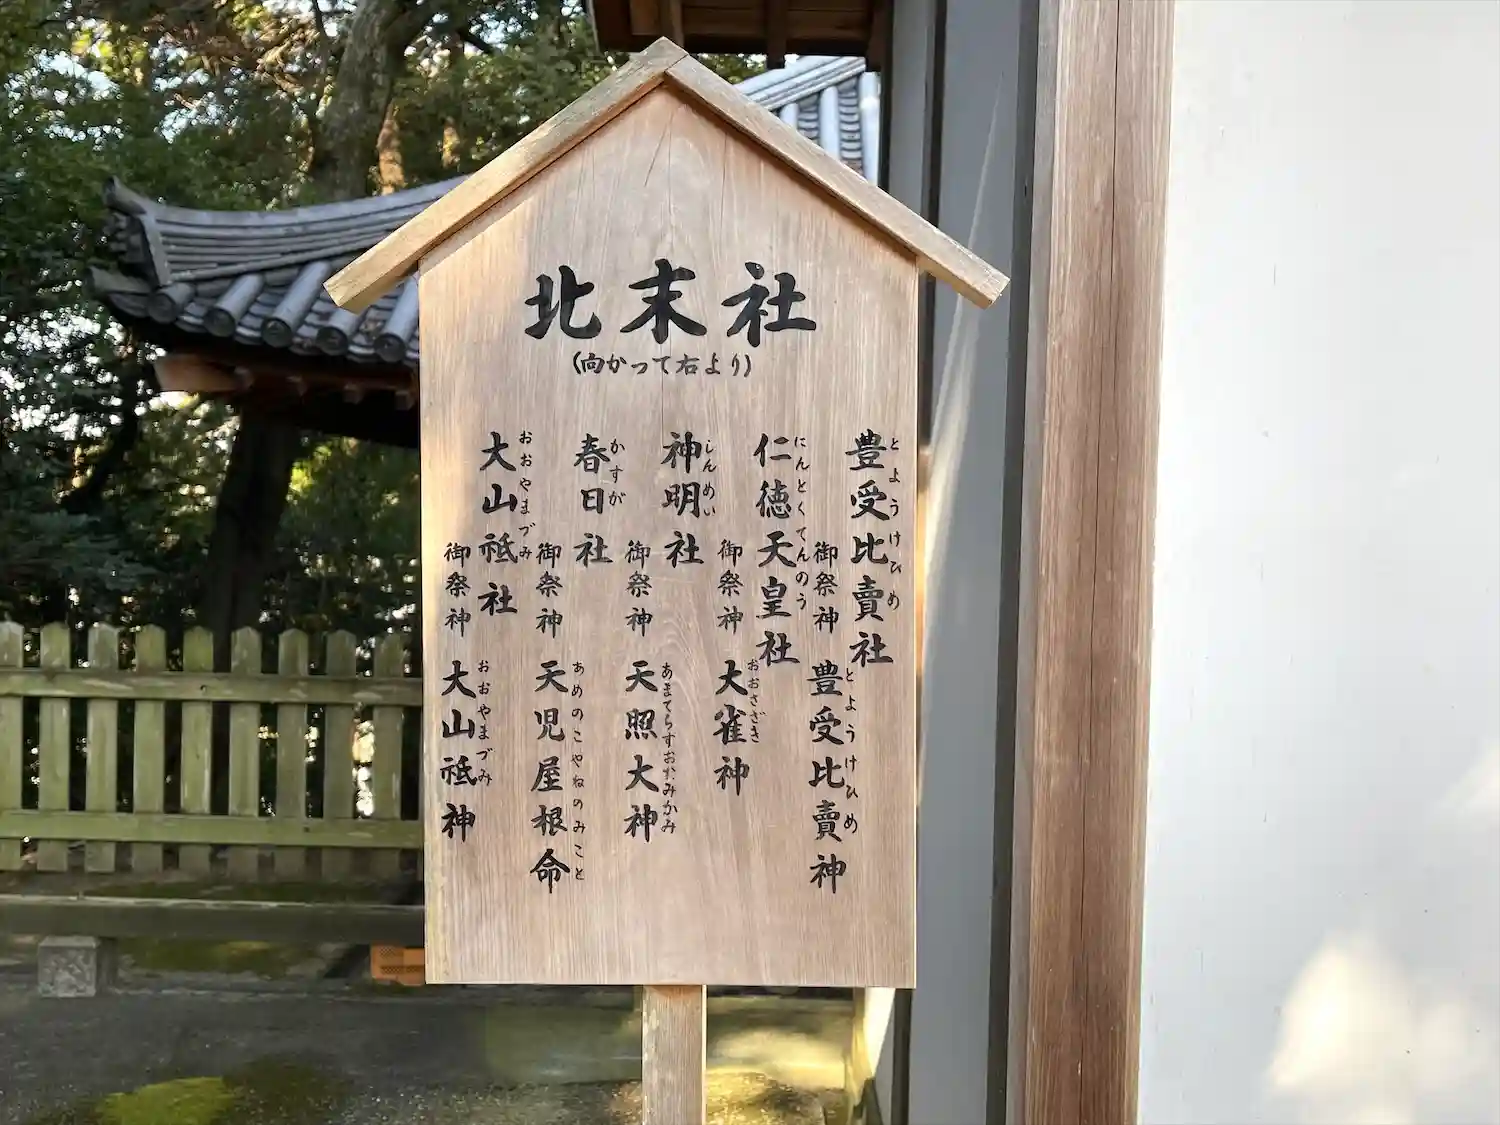 北末社
(向かって右より)
豊受比賣社
とようけひめ
御祭神 豊受比賣神
とようけひめ
仁徳天皇社
にんとくてんのう
御祭神 大雀神
おおさざき
神明社
しんめい
御祭神 天照大神
あまてらすおおみかみ
春日社
かすが
御祭神 天児屋根命
あめのこやねのみこと
大山祇社
おおやまづみ
御祭神 大山祇神
おおやまづみ